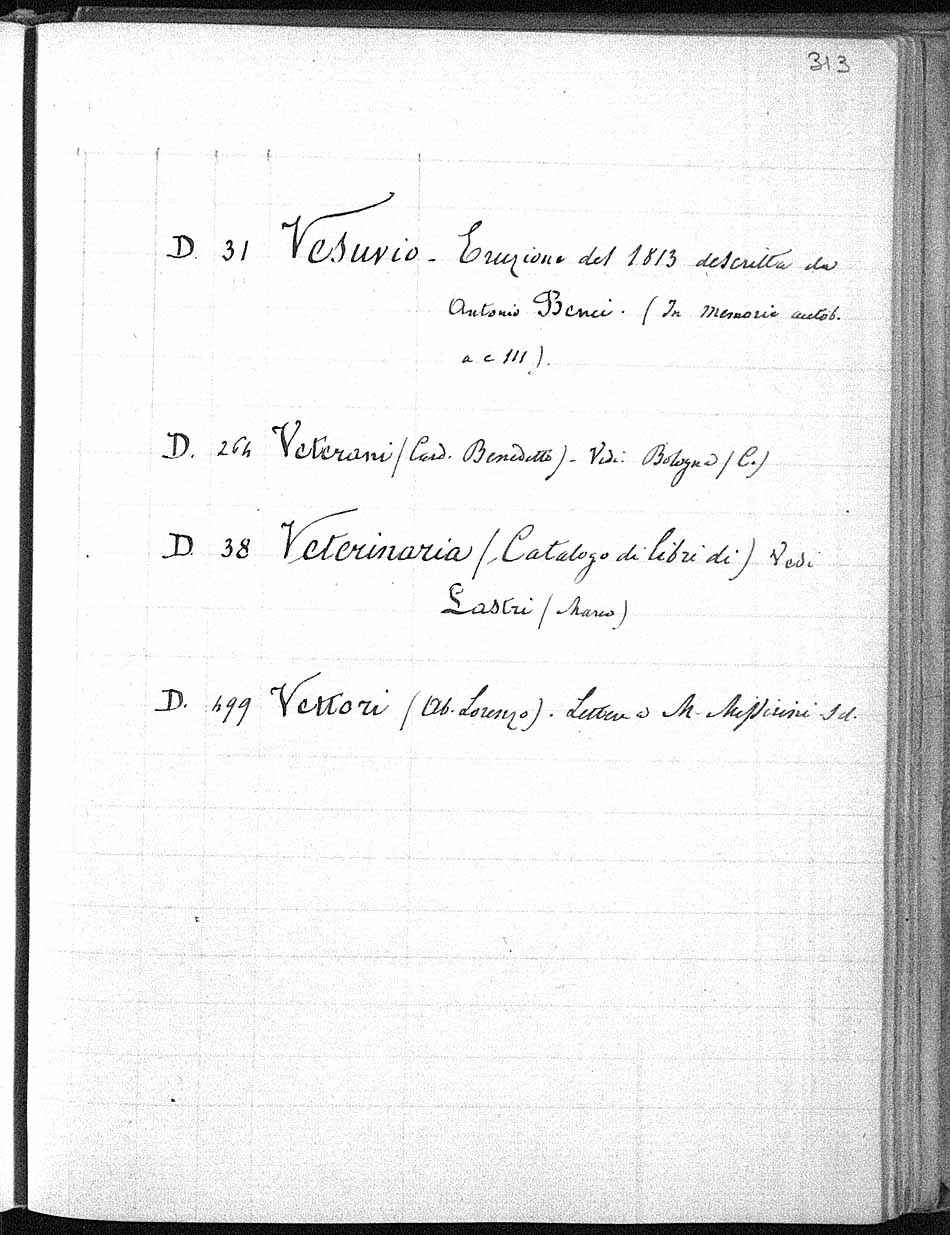 313
D. 31 Vesuvio - Eruzione del 1813 descritta da
Antonio Benci. (In Memorie autob.
a c 111).
D. 264 Veterani (Card. Benedetto) - Vedi: Bologna (C.)
D. 38 Veterinaria (Catalogo di libri di) Vedi
Lastri (Marco)
D. 499 Vettori (Ab. Lorenzo). Lettere a M. Missirini